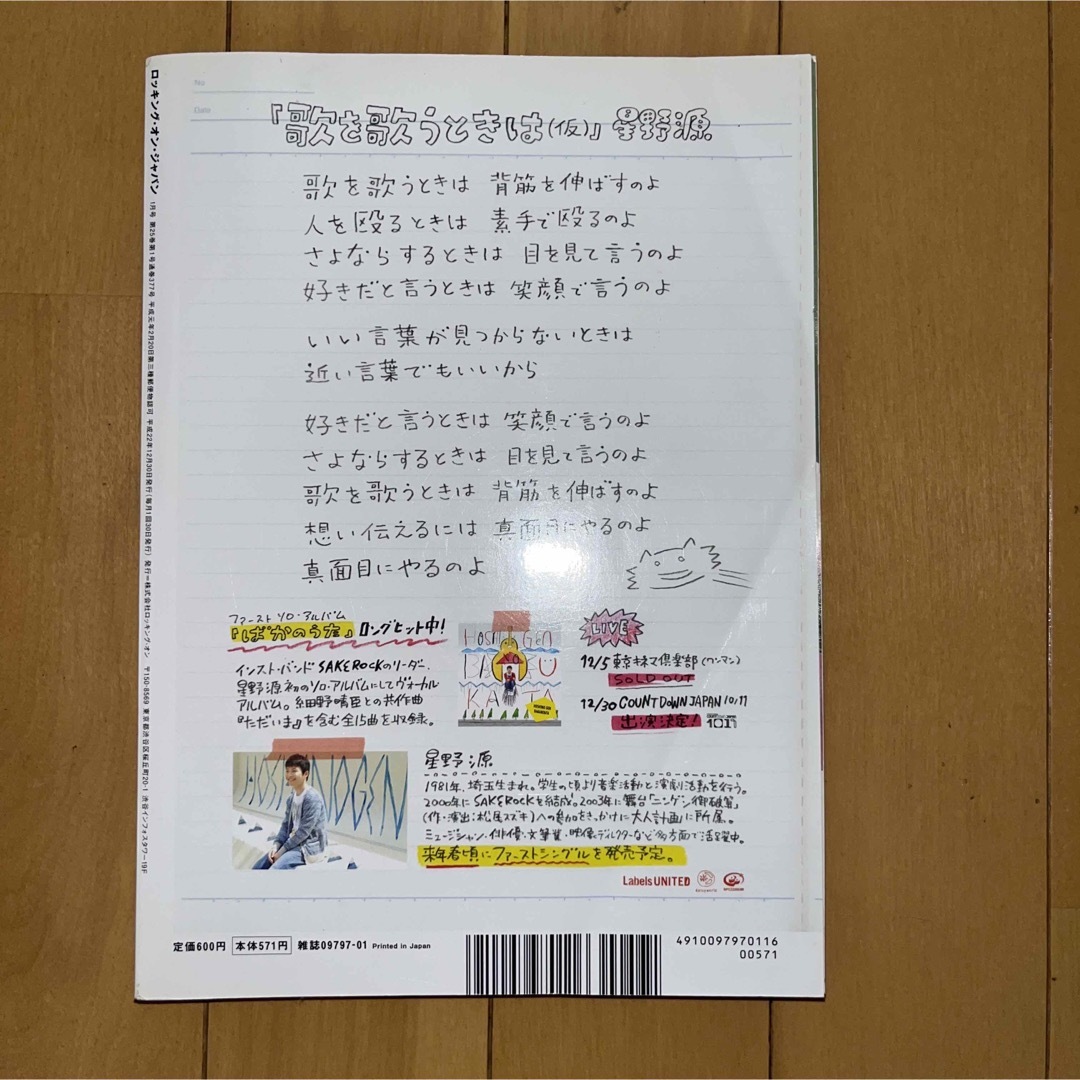 No
Date
『歌を歌うときは(仮)』星野源
歌を歌うときは 背筋を伸ばすのよ
人を殴るときは 素手で殴るのよ
さよならするときは 目を見て言うのよ
好きだと言うときは 笑顔で言うのよ
いい言葉が見つからないときは
近い言葉でもいいから
好きだと言うときは 笑顔で言うのよ
さよならするときは 目を見て言うのよ
歌を歌うときは 背筋を伸ばすのよ
想い伝えるには 真面目にやるのよ
真面目にやるのよ
ファースト ソロ・アルバム
『ばかのうた』ロングヒット中!
インスト・バンド SAKEROCKのリーダー、
星野源初のソロ・アルバムにしてヴォーカル
アルバム。細野晴臣との共作曲
『ただいま』を含む全15曲を収録。
HOSHINO GEN
BAKA NO
UTA
LIVE
12/5 東京キネマ倶楽部(ワンマン)
SOLD OUT
12/30 COUNTDOWN JAPAN 10/11
出演決定!
HOSHINOGEN
星野 源
1981年、埼玉生まれ。学生の頃より音楽活動と演劇活動を行う。
2000年にSAKEROCKを結成。2003年に舞台「ニンゲン御破算」
(作・演出:松尾スズキ)への参加をきっかけに大人計画に所属。
ミュージシャン・俳優・文筆業・映像ディレクターなど多方面で活躍中。
来年春頃にファーストシングルを発売予定。
Labels UNITED
定価600円 本体571円 雑誌09797-01 Printed in Japan
4910097970116
00571
ロッキング・オン・ジャパン 1月号 第25巻第1号通巻377号 平成元年2月20日第三種郵便物認可 平成22年12月30日発行(毎月1回30日発行) 発行=株式会社ロッキング・オン 〒150-8569 東京都渋谷区桜丘町20-1 渋谷インフォスタワー19F